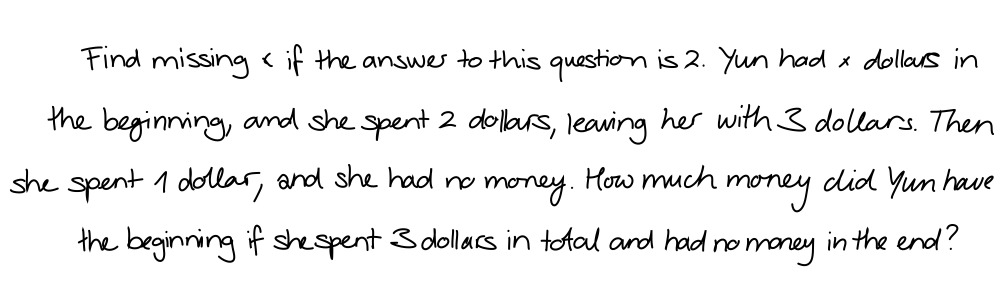 Find missing x if the answer to this question is 2. Yun had x dollars in
the beginning, and she spent 2 dollars, leaving her with 3 dollars. Then
she spent 1 dollar, and she had no money. How much money did Yun have
the beginning if she spent 3 dollars in total and had no money in the end?